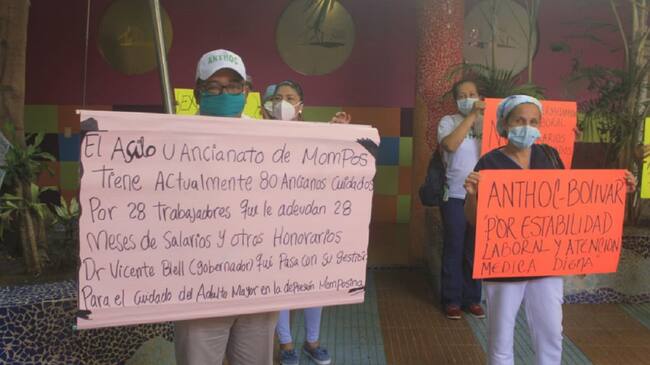 ANTHOC
El Asilo u Ancianato de MomPos
Tiene Actualmente 80 Ancianos cuidados
Por 28 trabajadores que le adeudan 28
Meses de Salarios y otros Honorarios
Dr Vicente Blell (gobernador) qui Pasa con su Gestion
Para el cuidado del Adulto Mayor en la depresión Momposina
ANTHOC-BOLIVAR
"POR ESTABILIDAD
LABORAL Y ATENCION
MEDICA DIGNA"